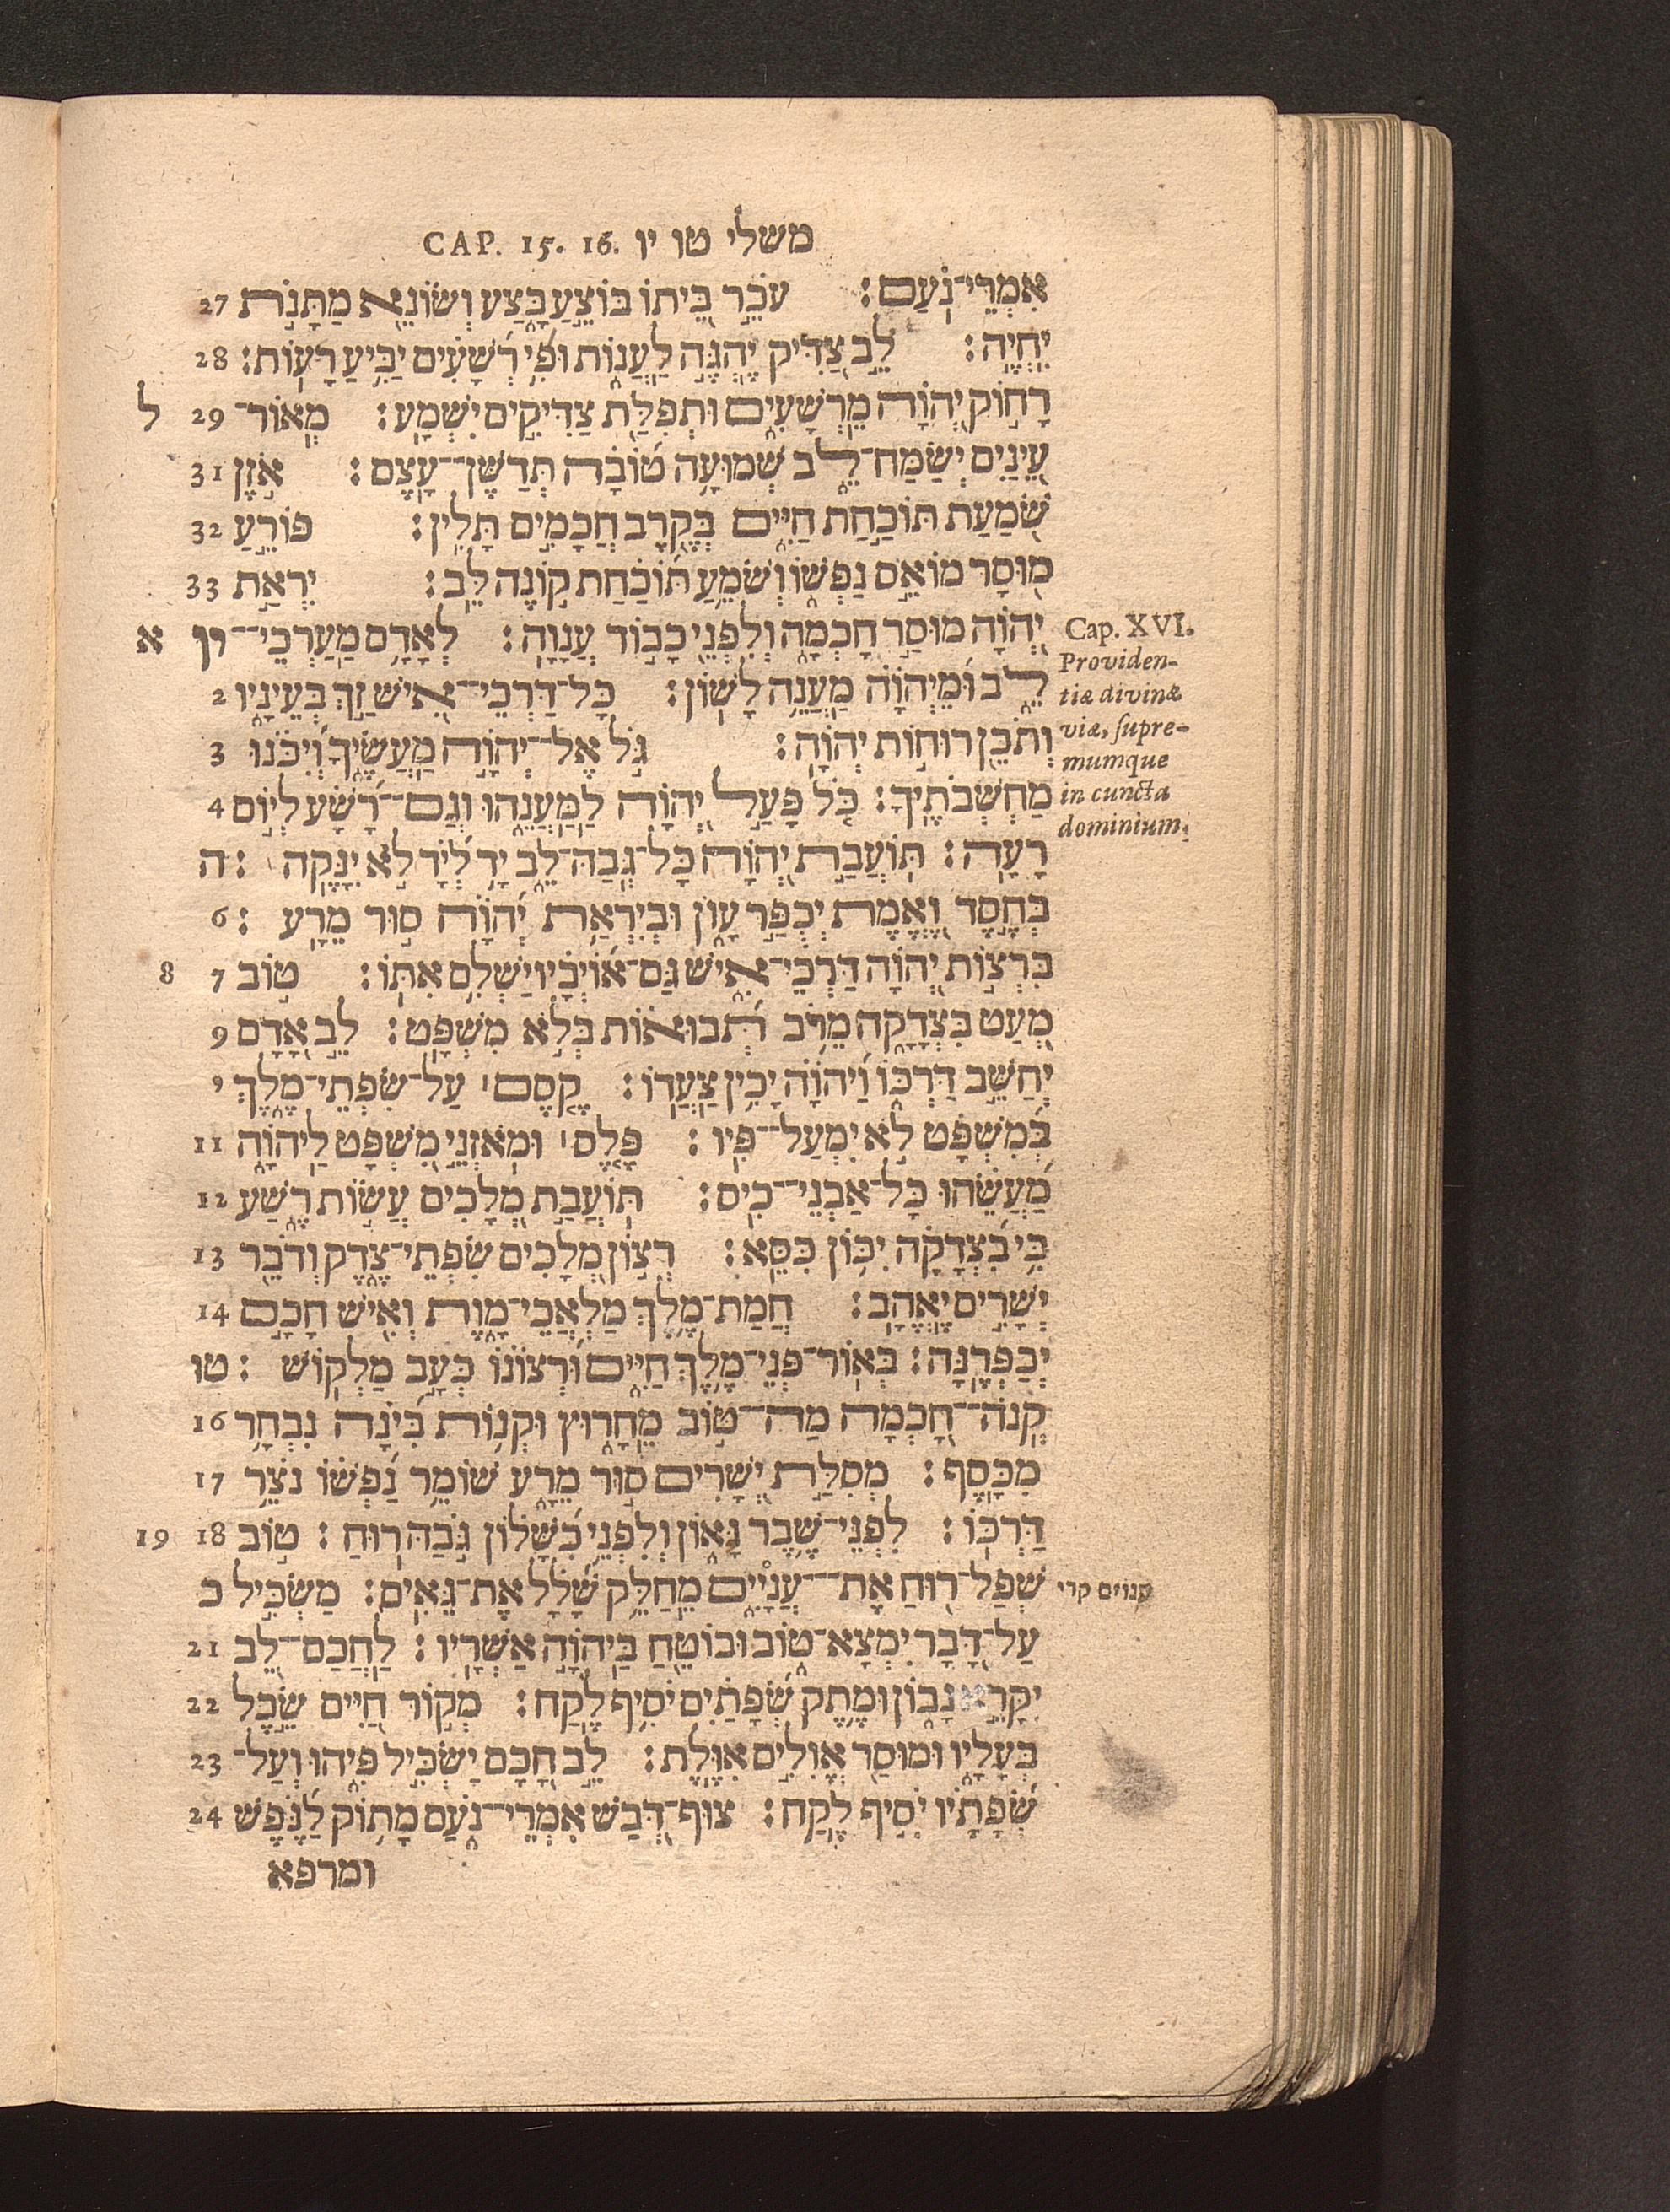 משלי טו יו CAP. 15. 16.
אִמְרֵי־נֹעַם׃ עֹכֵר בֵּיתוֹ בּוֹצֵעַ בָּצַע וְשׂוֹנֵא מַתָּנֹת 27
יִחְיֶה׃ לֵב צַדִּיק יֶהְגֶּה לַעֲנוֹת וּפִי רְשָׁעִים יַבִּיעַ רָעוֹת׃ 28
רָחוֹק יְהוָֹה מֵרְשָׁעִים וּתְפִלַּת צַדִּיקִים יִשְׁמָע׃ מְאוֹר־ 29 ל
עֵינַיִם יְשַׂמַּח־לֵב שְׁמוּעָה טוֹבָה תְּדַשֶּׁן־עָצֶם׃ אֹזֶן 31
שֹׁמַעַת תּוֹכַחַת חַיִּים בְּקֶרֶב חֲכָמִים תָּלִין׃ פּוֹרֵעַ 32
מוּסָר מוֹאֵס נַפְשׁוֹ וְשֹׁמֵעַ תּוֹכַחַת קוֹנֶה לֵּב׃ יִרְאַת 33
יְהוָֹה מוּסַר חָכְמָה וְלִפְנֵי כָבוֹד עֲנָוָה׃ לְאָדָם מַעַרְכֵי־ יו א
Cap. XVI.
לֵב וּמֵיְהוָֹה מַעֲנֵה לָשׁוֹן׃ כָּל־דַּרְכֵי־אִישׁ זַךְ בְּעֵינָיו 2
וְתֹכֵן רוּחוֹת יְהוָֹה׃ גֹּל אֶל־יְהוָֹה מַעֲשֶׂיךָ וְיִכֹּנוּ 3
מַחְשְׁבֹתֶיךָ׃ כֹּל פָּעַל יְהוָֹה לַמַּעֲנֵהוּ וְגַם־רָשָׁע לְיוֹם 4
Providen-
tiæ divinæ
viæ, supre-
mumque
in cuncta
dominium.
רָעָה׃ תּוֹעֲבַת יְהוָֹה כָּל־גְּבַהּ־לֵב יָד לְיָד לֹא יִנָּקֶה׃ ה
בְּחֶסֶד וֶאֱמֶת יְכֻפַּר עָוֹן וּבְיִרְאַת יְהוָֹה סוּר מֵרָע׃ 6
בִּרְצוֹת יְהוָֹה דַּרְכֵי־אִישׁ גַּם־אוֹיְבָיו יַשְׁלִם אִתּוֹ׃ טוֹב 7 8
מְעַט בִּצְדָקָה מֵרֹב תְּבוּאוֹת בְּלֹא מִשְׁפָּט׃ לֵב אָדָם 9
יְחַשֵּׁב דַּרְכּוֹ וַיהוָֹה יָכִין צַעֲדוֹ׃ קֶסֶם׀ עַל־שִׂפְתֵי־מֶלֶךְ י
בְּמִשְׁפָּט לֹא יִמְעַל־פִּיו׃ פֶּלֶס׀ וּמֹאזְנֵי מִשְׁפָּט לַיהוָֹה 11
מַעֲשֵׂהוּ כָּל־אַבְנֵי־כִיס׃ תּוֹעֲבַת מְלָכִים עֲשׂוֹת רֶשַׁע 12
כִּי בִצְדָקָה יִכּוֹן כִּסֵּא׃ רְצוֹן מְלָכִים שִׂפְתֵי־צֶדֶק וְדֹבֵר 13
יְשָׁרִים יֶאֱהָב׃ חֲמַת־מֶלֶךְ מַלְאֲכֵי־מָוֶת וְאִישׁ חָכָם 14
יְכַפְּרֶנָּה׃ בְּאוֹר־פְּנֵי־מֶלֶךְ חַיִּים וּרְצוֹנוֹ כְּעָב מַלְקוֹשׁ׃ טו
קְנֹה־חָכְמָה מַה־טּוֹב מֵחָרוּץ וּקְנוֹת בִּינָה נִבְחָר 16
מִכָּסֶף׃ מְסִלַּת יְשָׁרִים סוּר מֵרָע שׁוֹמֵר נַפְשׁוֹ נֹצֵר 17
דַּרְכּוֹ׃ לִפְנֵי־שֶׁבֶר גָּאוֹן וְלִפְנֵי כִשָּׁלוֹן גֹּבַהּ רוּחַ׃ טוֹב 18 19
שְׁפַל־רוּחַ אֶת־עֲנָיִים מֵחַלֵּק שָׁלָל אֶת־גֵּאִים׃ מַשְׂכִּיל כ
ענוים קרי
עַל־דָּבָר יִמְצָא־טוֹב וּבוֹטֵחַ בַּיהוָֹה אַשְׁרָיו׃ לַחֲכַם־לֵב 21
יִקָּרֵא נָבוֹן וּמֶתֶק שְׂפָתַיִם יֹסִיף לֶקַח׃ מְקוֹר חַיִּים שֵׂכֶל 22
בְּעָלָיו וּמוּסַר אֱוִלִים אִוֶּלֶת׃ לֵב חָכָם יַשְׂכִּיל פִּיהוּ וְעַל־ 23
שְׂפָתָיו יֹסִיף לֶקַח׃ צוּף־דְּבַשׁ אִמְרֵי־נֹעַם מָתוֹק לַנֶּפֶשׁ 24
ומרפא